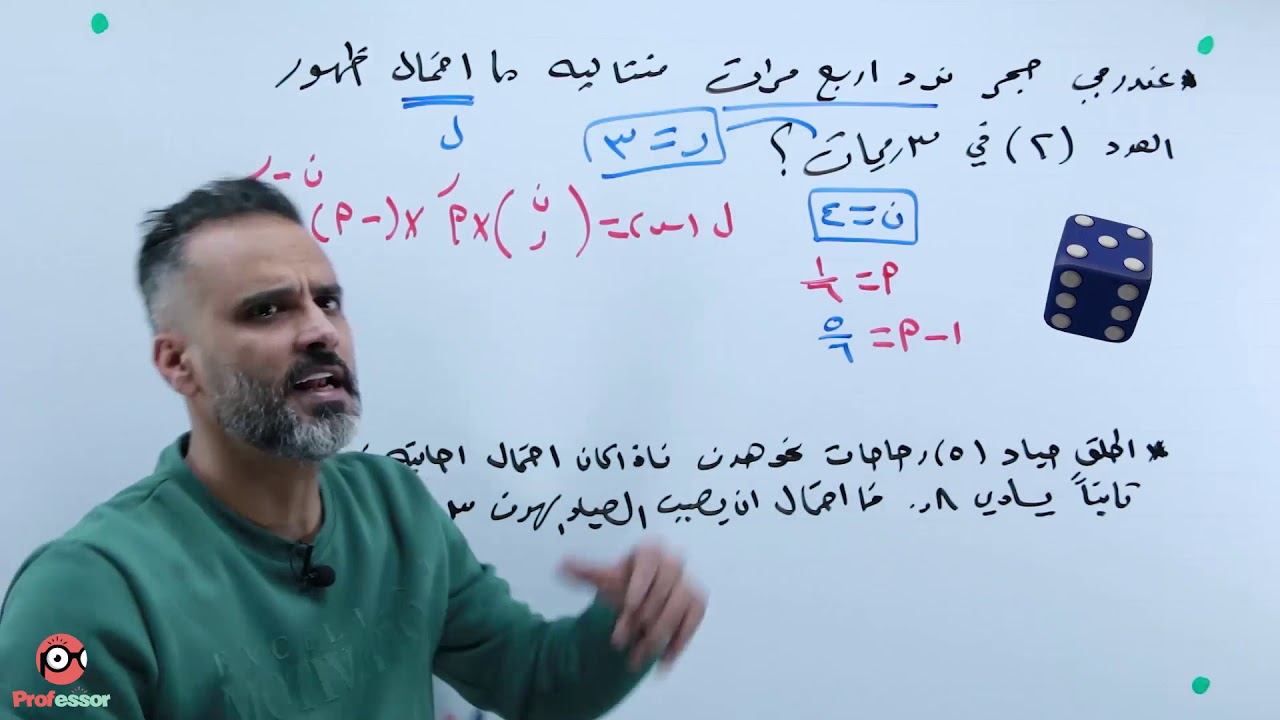 * عند رمي حجر نرد اربع مرات متتاليه ما احتمال ظهور
العدد (٢) في ٣ رميات ؟
ر = ٣
ل
ن = ٤
ل (س) = (ن ر) × P^ر × (١ - P)^ن - ر
P = ١/٦
١ - P = ٥/٦
* اطلق صياد (٥) رصاصات نحو هدف فاذا كان احتمال اصابته
ثابتاً يساوي ٨,٠ فما احتمال ان يصيب الصياد الهدف ٣
Professor